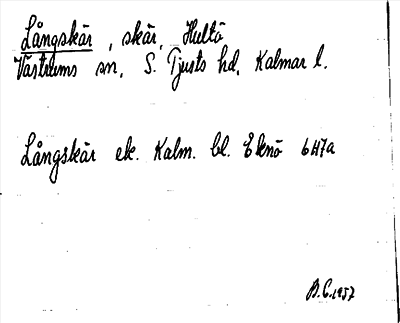 Långskär, skär, Hultö
Västrums sn, S. Tjusts hd, Kalmar l.
Långskär ek. Kalm. bl. Eknö 6H7a
B.C. 1957